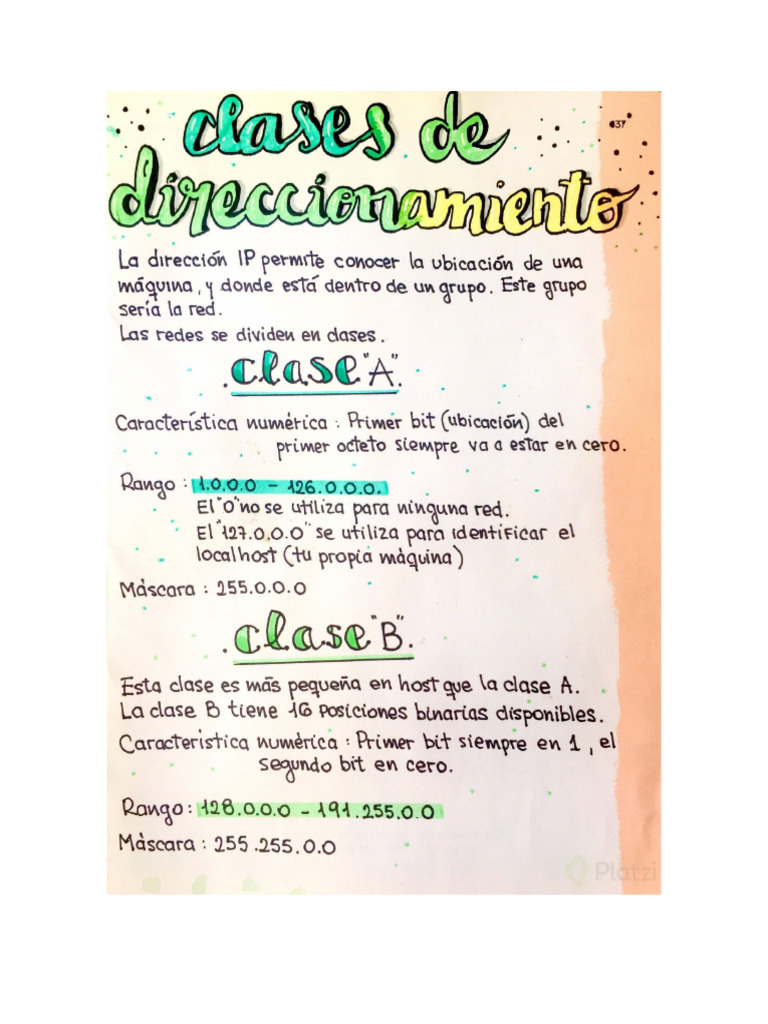 clases de
direccionamiento
037
La dirección IP permite conocer la ubicación de una
máquina, y donde está dentro de un grupo. Este grupo
sería la red.
Las redes se dividen en clases.
.clase "A".
Característica numérica : Primer bit (ubicación) del
primer octeto siempre va a estar en cero.
Rango : 1.0.0.0 - 126.0.0.0.
El "0" no se utiliza para ninguna red.
El "127.0.0.0" se utiliza para identificar el
localhost (tu propia máquina)
Máscara : 255.0.0.0
.clase "B".
Esta clase es más pequeña en host que la clase A.
La clase B tiene 16 posiciones binarias disponibles.
Caracteristica numérica : Primer bit siempre en 1, el
segundo bit en cero.
Rango : 128.0.0.0 - 191.255.0.0
Máscara : 255.255.0.0
Platzi